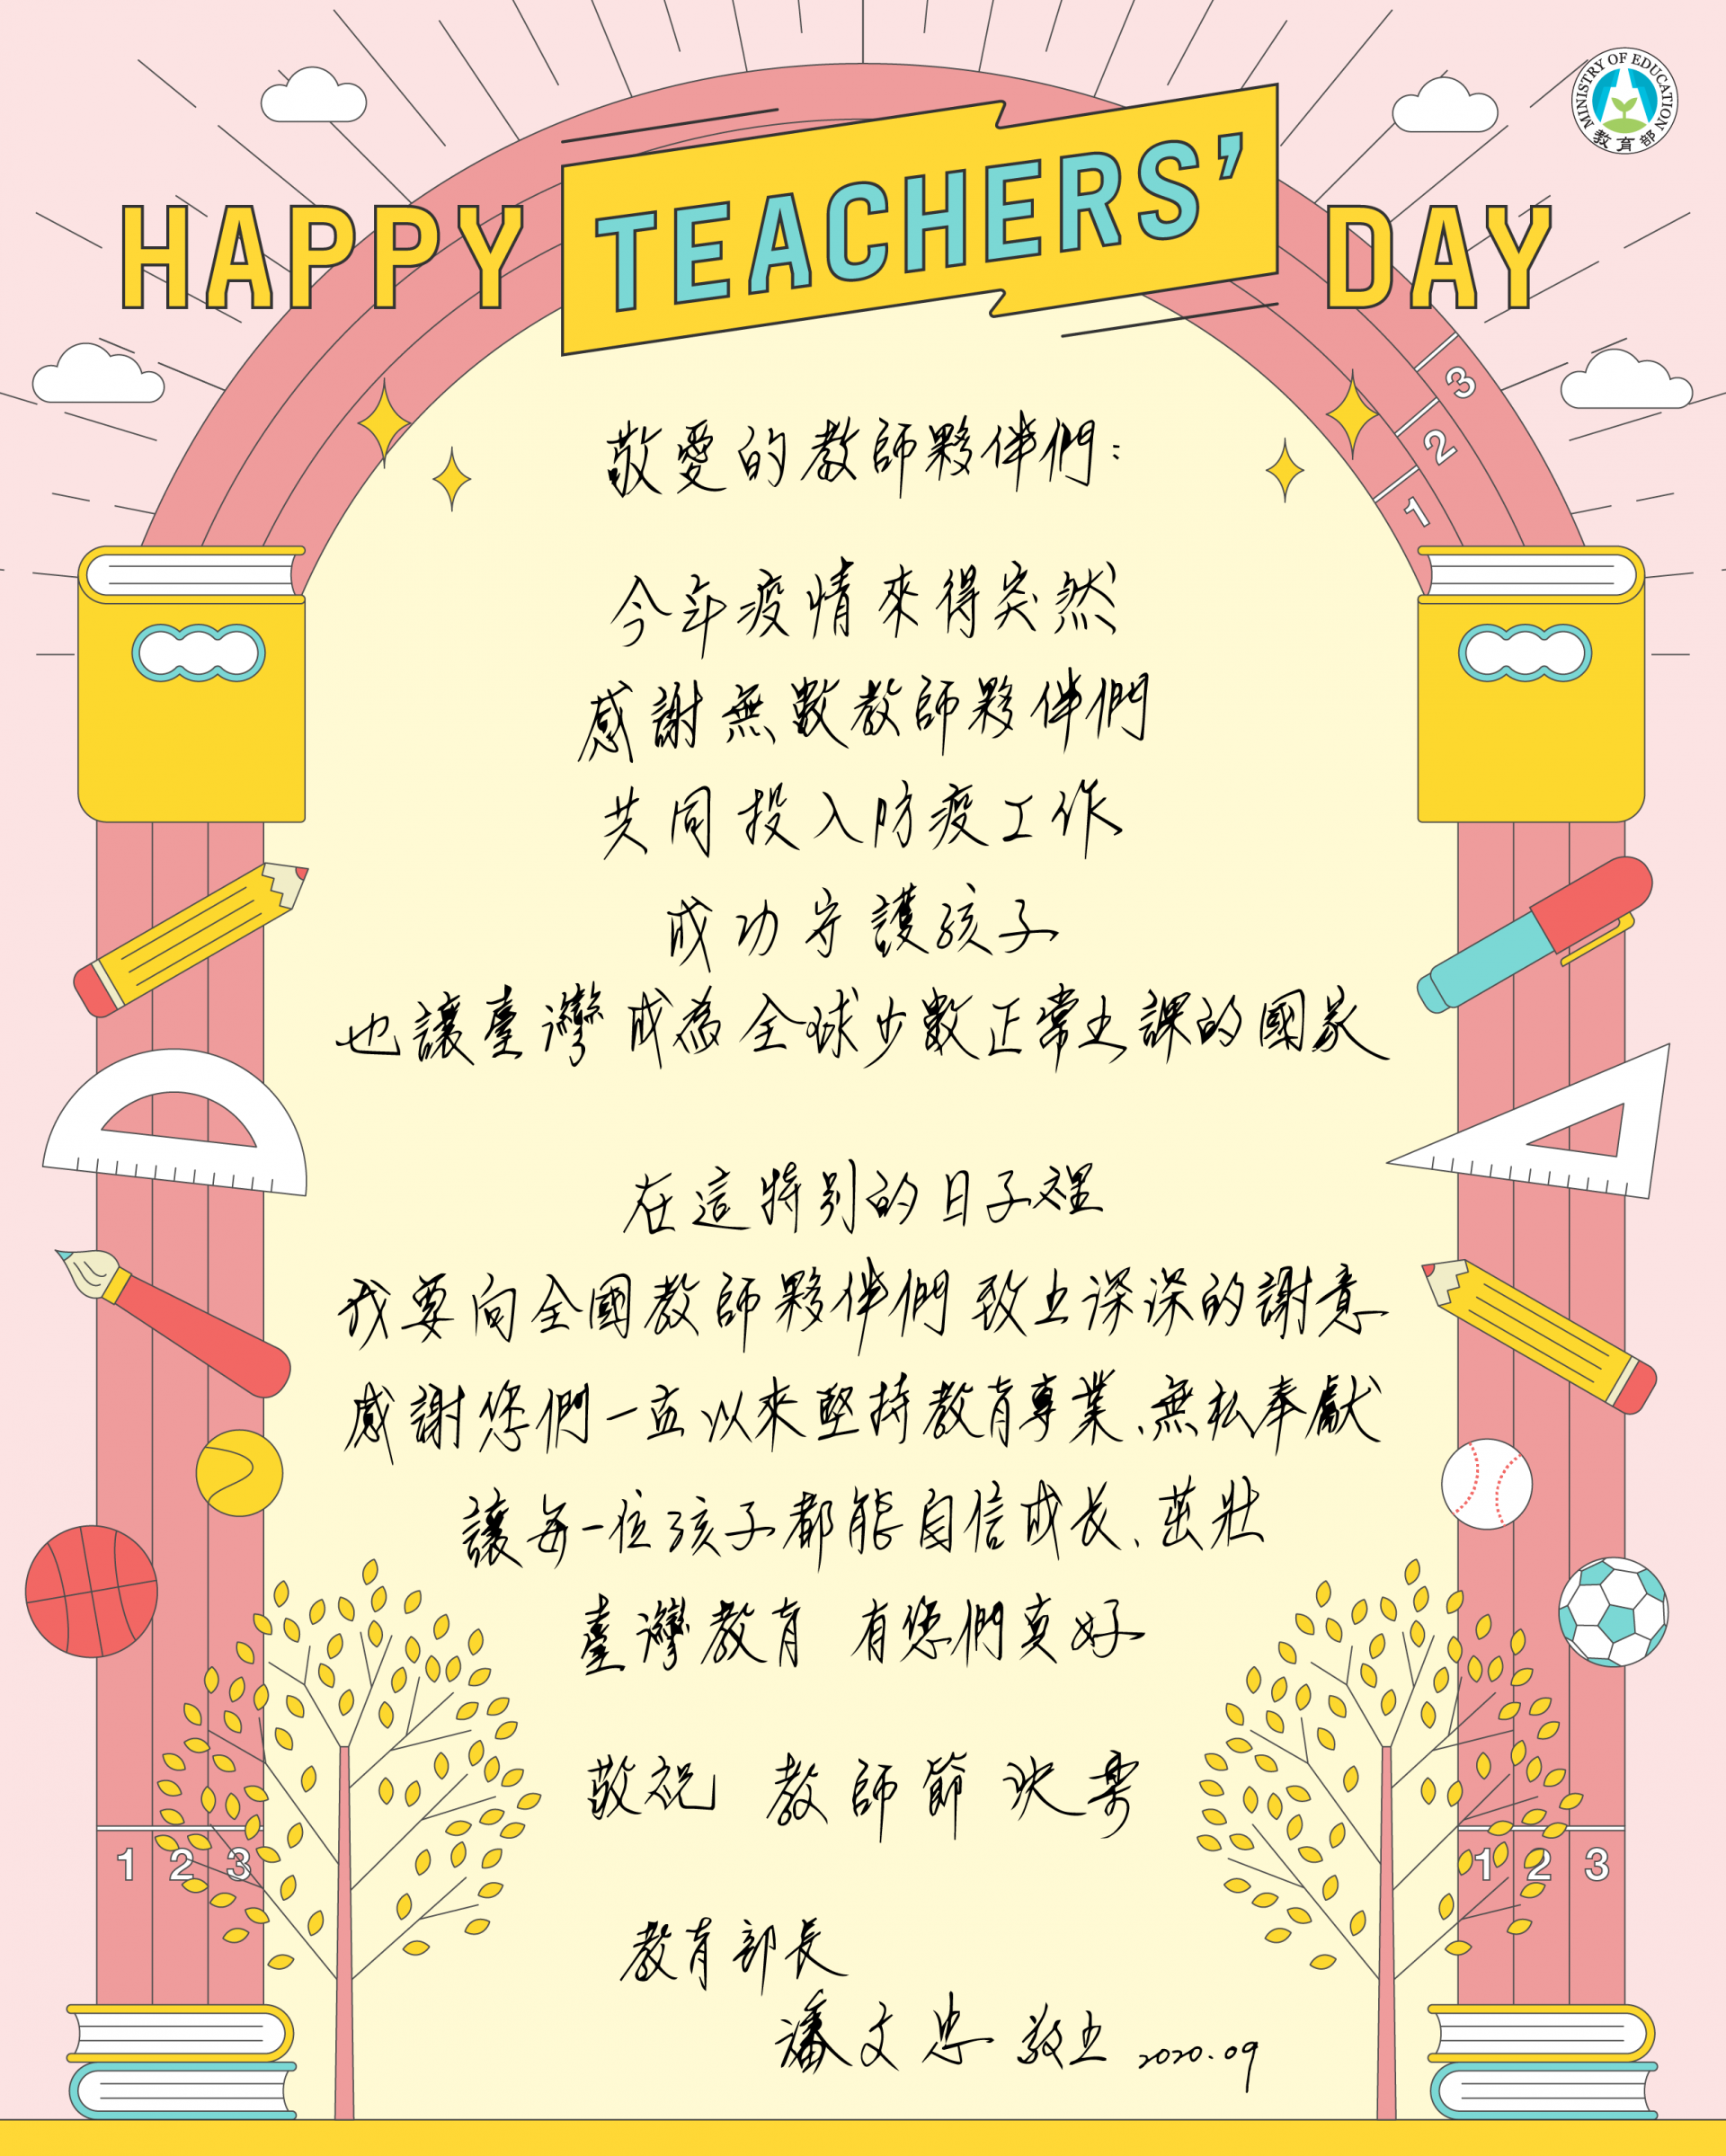 MINISTRY OF EDUCATION
教育部
HAPPY TEACHERS' DAY
3
2
1
敬愛的教師夥伴們:
今年疫情來得突然
感謝無數教師夥伴們
共同投入防疫工作
成功守護孩子
也讓臺灣成為全球少數正常上課的國家
在這特別的日子裡
我要向全國教師夥伴們致上深深的謝意
感謝您們一直以來堅持教育專業、無私奉獻
讓每一位孩子都能自信成長、茁壯
臺灣教育 有您們真好
敬祝 教師節快樂
1 2 3
1 2 3
教育部長
潘文忠 敬上 2020.09